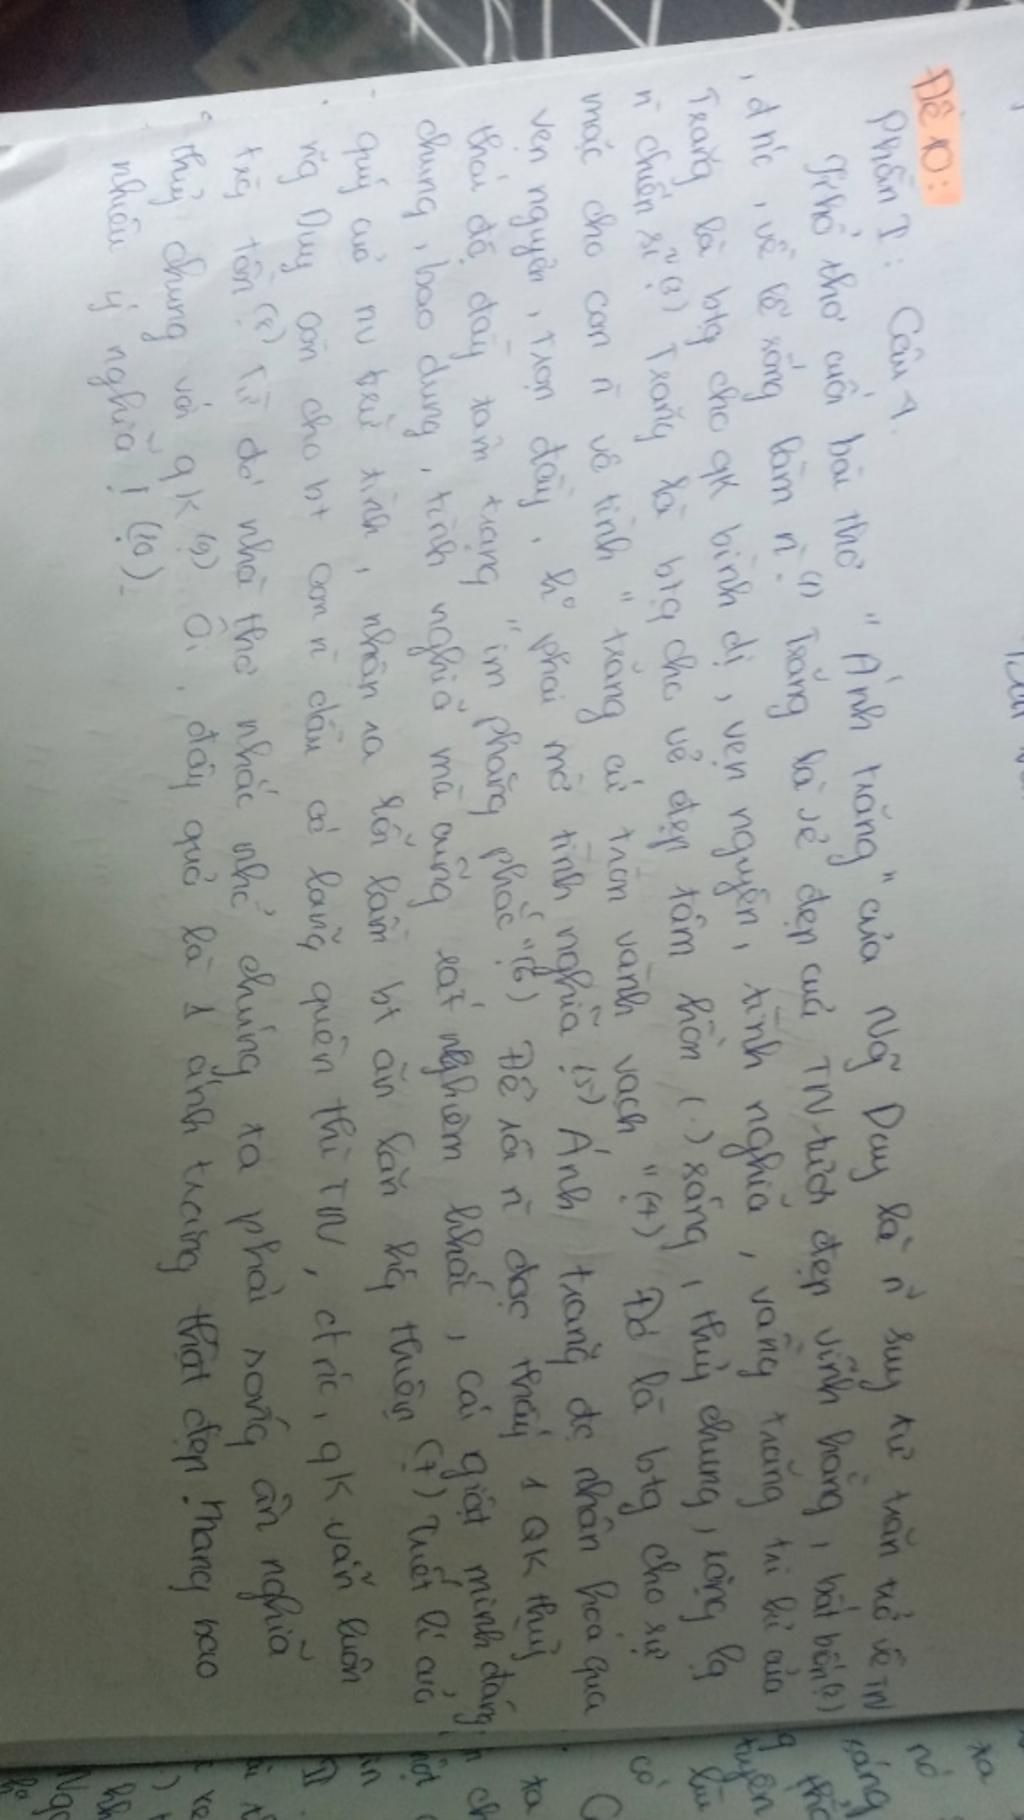 Đề 10:
Phần I: Câu 4.
Khổ thơ cuối bài thơ "Ánh trăng" của Ng~ Duy là n~ suy tư trăn trở về TN
, đ n'c, về lẽ sống làm n`. (1) Trăng là vẻ đẹp của TN-tươi đẹp vĩnh hằng, bất biến (2)
Trăng là btg cho qk bình dị, vẹn nguyên, tình nghĩa, vầng trăng tri kỉ của
n` chiến sĩ (3) Trăng là btg cho vẻ đẹp tâm hồn (.) sáng, thủy chung, lặng lẽ
mặc cho con n` vô tình "trăng cứ tròn vành vạch" (4) Đó là btg cho sự
vẹn nguyên, trọn đầy, ko phai mờ tình nghĩa (5) Ánh trăng đc nhân hóa qua
thái độ đầy tâm trạng "im phăng phắc" (6) Để rồi n` đọc thấy 1 QK thủy
chung, bao dung, tình nghĩa mà cũng rất nghiêm khắc, cái giật mình đáng
quý của nv trữ tình, nhận ra lỗi lầm bt ăn năn hg thiện (7) Triết lí của
ng~ Duy còn cho bt con n` dẫu có lãng quên thì TN, đ n'c, qk vẫn luôn
trg tồn. (8) Từ đó nhà thơ nhắc nhở chúng ta phải sống ân nghĩa
thủy chung với qk (9) Ôi, đây quả là 1 ánh trăng thật đẹp. mang bao
nhiêu ý nghĩa! (10)-